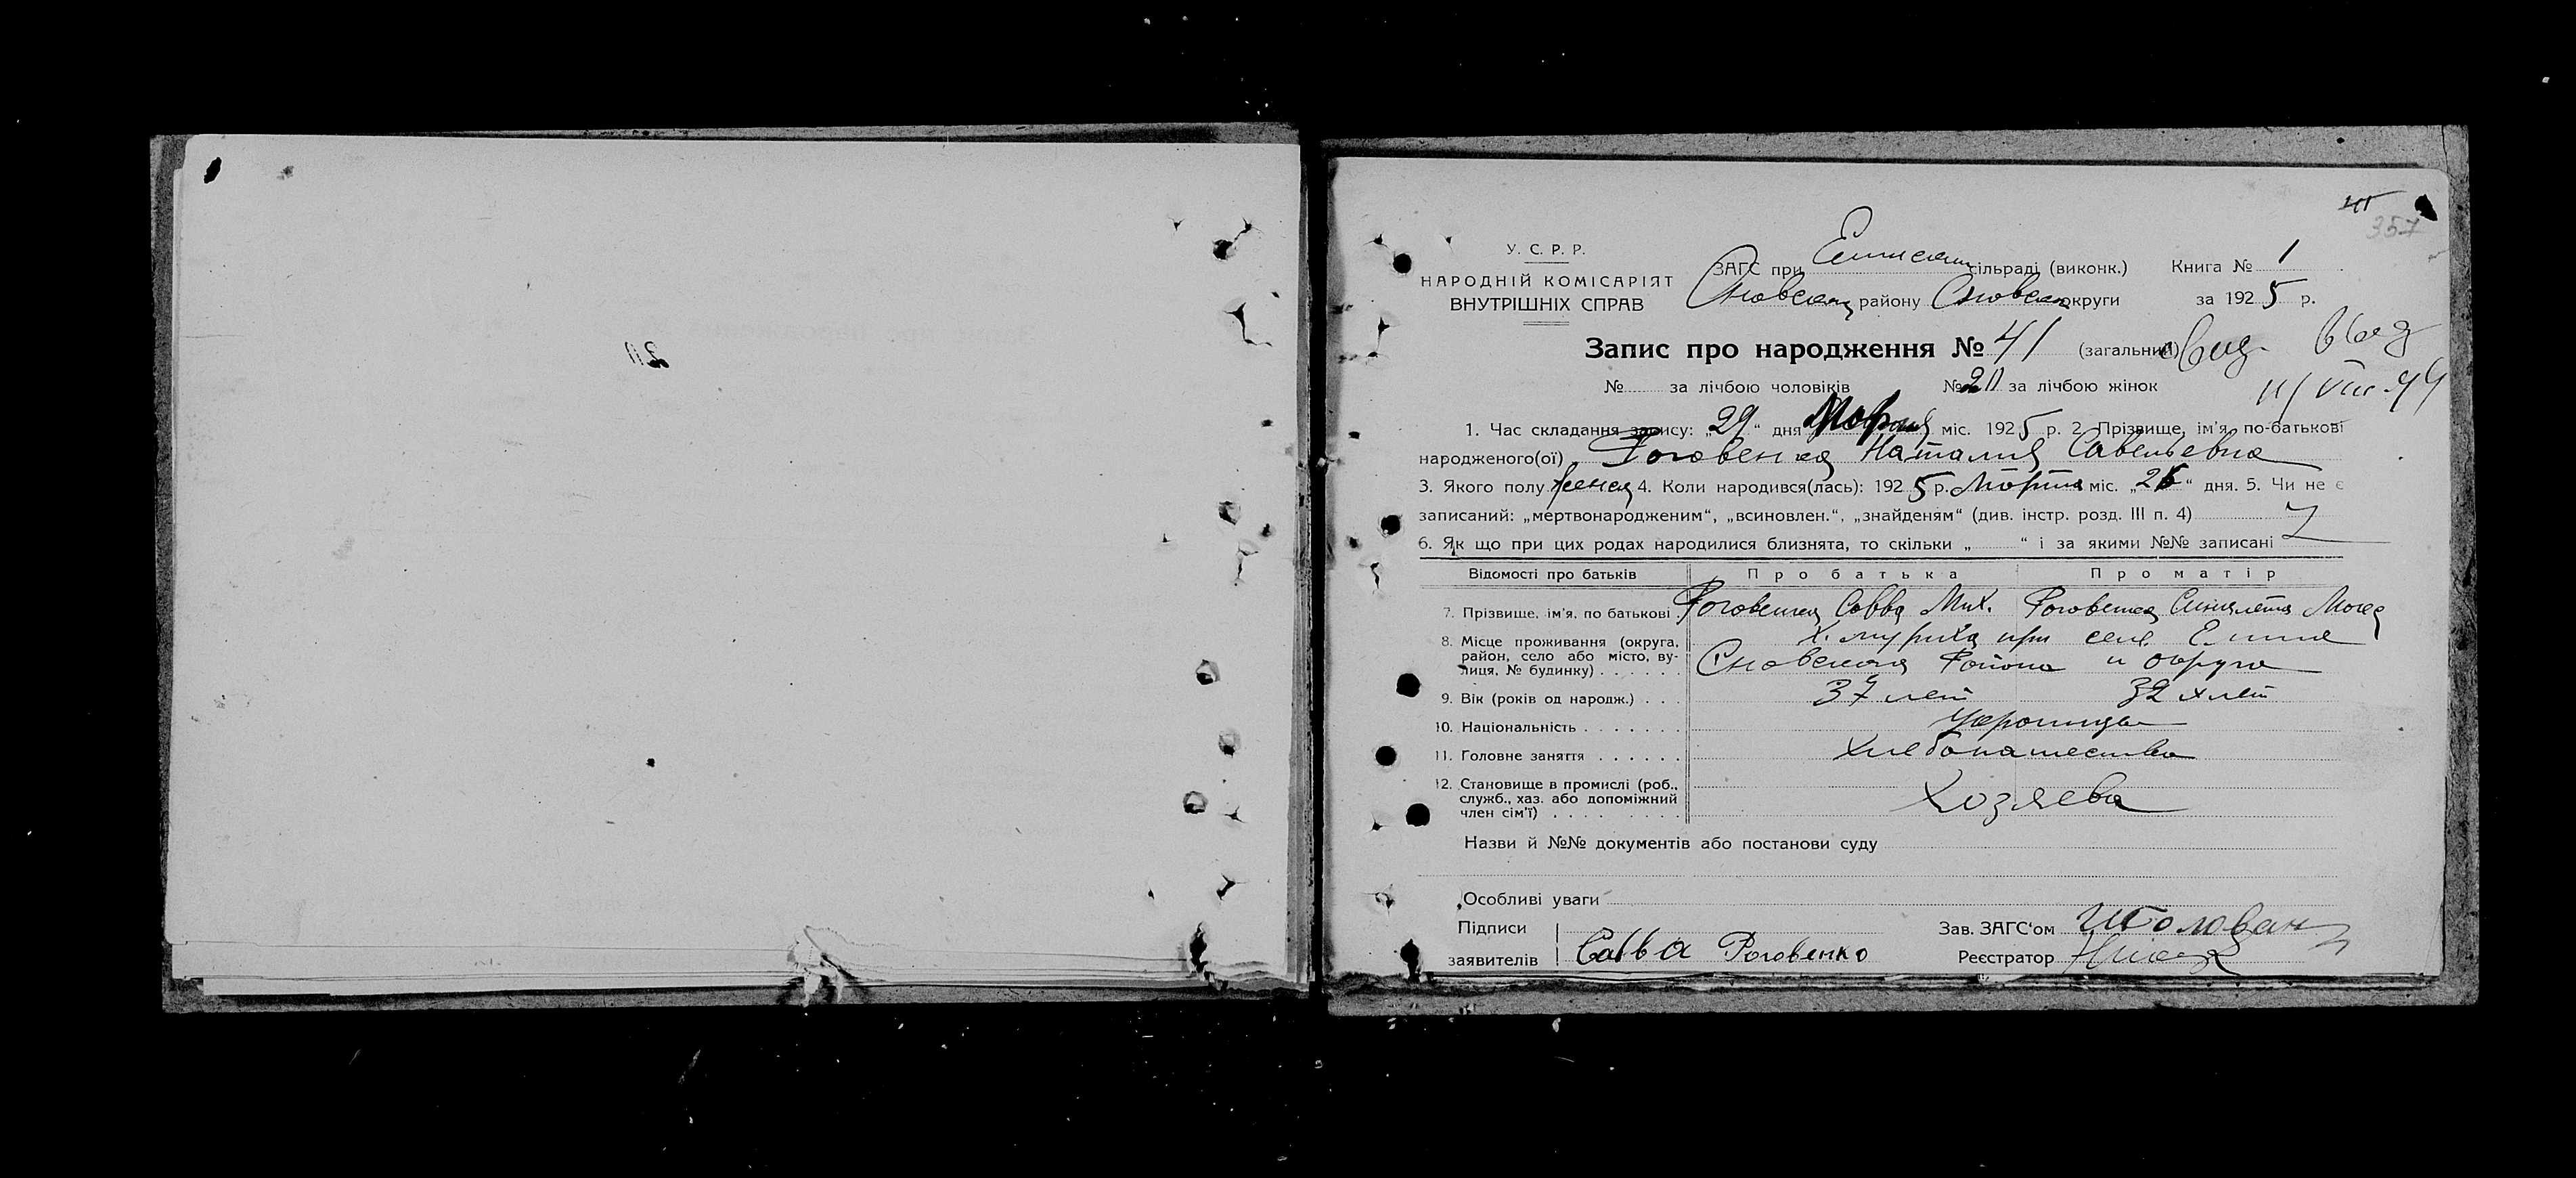 357
У. С. Р. Р.
НАРОДНІЙ КОМІСАРІЯТ
ВНУТРІШНІХ СПРАВ
ЗАГС при сільраді (виконк.) Книга № 1
району округи за 1925 р.
Запис про народження № 41 (загальний)
№ за лічбою чоловіків № 20 за лічбою жінок
1. Час складання запису: „29“ дня Марта міс. 1925 р. 2. Прізвище, ім'я, по-батькові
народженого(ої) Роговенко Наталия Савельевна
3. Якого полу женск 4. Коли народився(лась): 1925 р. Марта міс. „ “ дня. 5. Чи не є
записаний: „мертвонародженим“, „всиновлен.“, „знайденям“ (див. інстр. розд. III п. 4)
6. Як що при цих родах народилися близнята, то скільки „ “ і за якими №№ записані
Відомості про батьків Про батька Про матір
7. Прізвище, ім'я, по батькові Роговенко Савва Мих. Роговенко
8. Місце проживання (округа, район, село або місто, вулиця, № будинку) х. при селе
Сновского Района и округа
9. Вік (років од народж.) 37 лет 32 х лет
10. Національність Украинцы
11. Головне заняття Хлебопашество
12. Становище в промислі (роб., служб., хаз. або допоміжний член сім'ї) Хозяева
Назви й №№ документів або постанови суду
Особливі уваги
Підписи Зав. ЗАГС'ом
заявителів Савва Роговенко Реєстратор